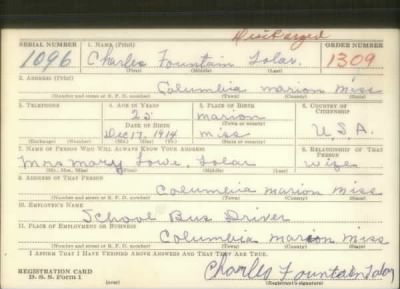 Discharged
SERIAL NUMBER 1. NAME (Print) ORDER NUMBER
1096 Charles Fountain Tolar 1309
(First) (Middle) (Last)
2. ADDRESS (Print)
Columbia Marion Miss
(Number and street or R. F. D. number) (Town) (County) (State)
3. TELEPHONE 4. AGE IN YEARS 5. PLACE OF BIRTH 6. COUNTRY OF CITIZENSHIP
25 Marion
DATE OF BIRTH (Town or county)
Dec 17, 1914 Miss U.S.A.
(Exchange) (Number) (Mo.) (Day) (Yr.) (State or country)
7. NAME OF PERSON WHO WILL ALWAYS KNOW YOUR ADDRESS 8. RELATIONSHIP OF THAT PERSON
Mrs Mary Lowe Tolar Wife
(Mr., Mrs., Miss) (First) (Middle) (Last)
9. ADDRESS OF THAT PERSON
Columbia Marion Miss
(Number and street or R. F. D. number) (Town) (County) (State)
10. EMPLOYER'S NAME
School Bus Driver
11. PLACE OF EMPLOYMENT OR BUSINESS
Columbia Marion Miss
(Number and street or R. F. D. number) (Town) (County) (State)
I AFFIRM THAT I HAVE VERIFIED ABOVE ANSWERS AND THAT THEY ARE TRUE.
REGISTRATION CARD
D. S. S. Form 1 Charles Fountain Tolar
(over) (Registrant's signature)